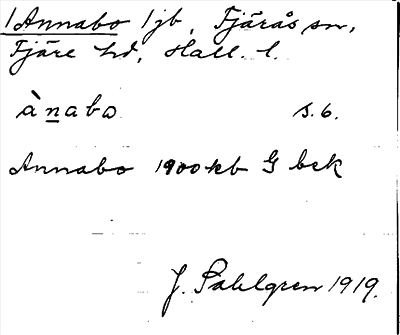 1 Annabo 1 jb, Fjärås sn,
Fjäre hd, Hall. l.
ànabo s. 6.
Annabo 1900 kb G bck
J. Sahlgren 1919.